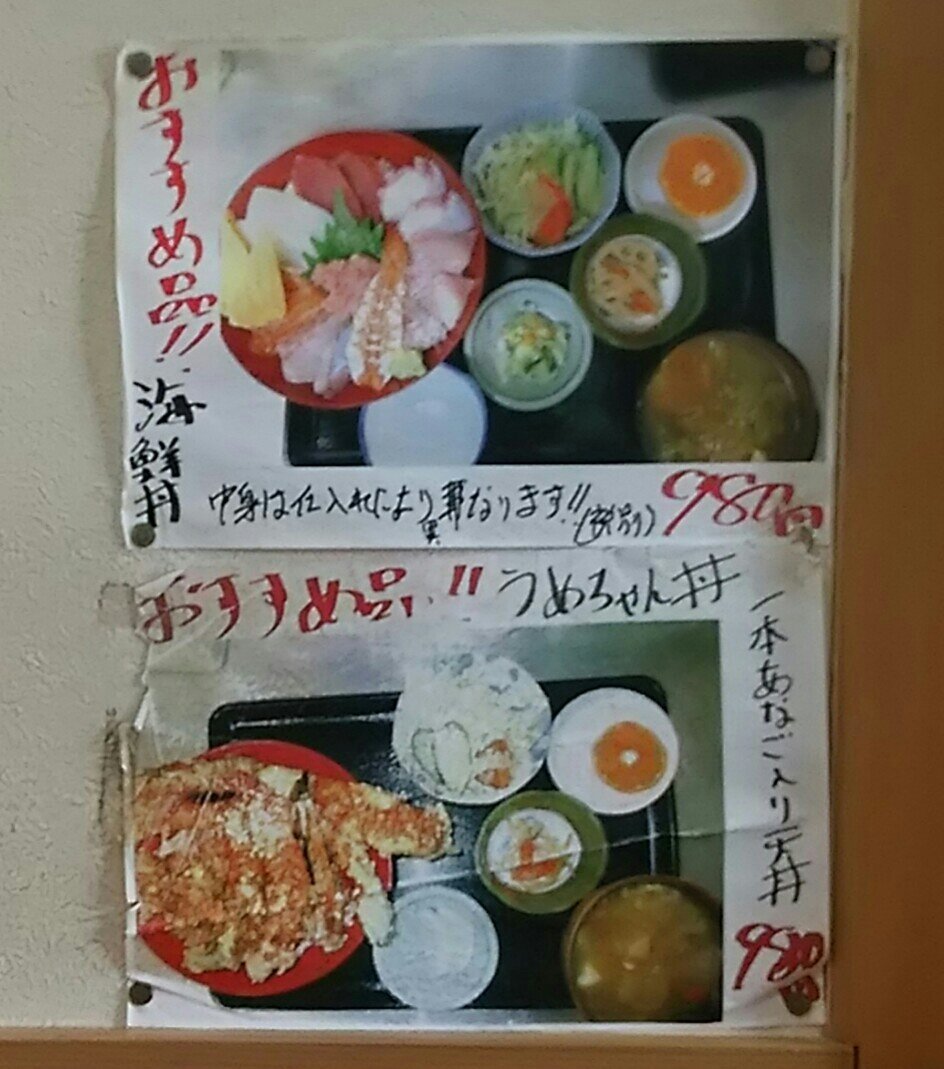 おすすめ品!!
海鮮丼
中身は仕入れにより異なります!!
980円
おすすめ品!!
うめちゃん丼
一本あなご入り天丼
980円